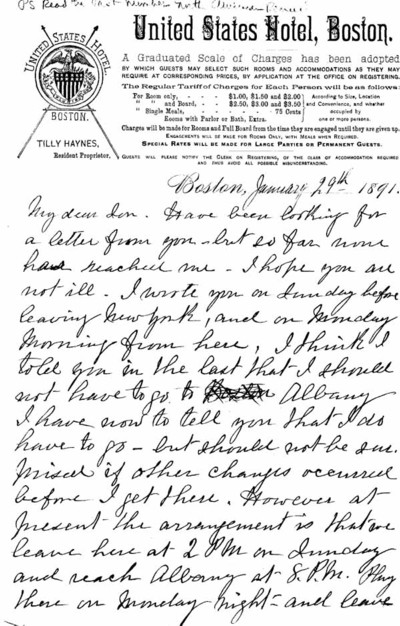 PS Read in last number North American Review
United States Hotel, Boston.
UNITED STATES HOTEL.
BOSTON.
TILLY HAYNES,
Resident Proprietor.
A Graduated Scale of Charges has been adopted
BY WHICH GUESTS MAY SELECT SUCH ROOMS AND ACCOMMODATIONS AS THEY MAY
REQUIRE AT CORRESPONDING PRICES, BY APPLICATION AT THE OFFICE ON REGISTERING.
The Regular Tariff of Charges for Each Person will be as follows:
For Room only, - - $1.00, $1.50 and $2.00 According to Size, Location,
" " and Board, - - $2.50, $3.00 and $3.50 and Convenience, and whether
" Single Meals, - - - - - 75 Cents occupied by
Rooms with Parlor or Bath, Extra. one or more persons.
Charges will be made for Rooms and Full Board from the time they are engaged until they are given up.
ENGAGEMENTS WILL BE MADE FOR ROOMS ONLY, WITH MEALS WHEN REQUIRED.
SPECIAL RATES WILL BE MADE FOR LARGE PARTIES OR PERMANENT GUESTS.
GUESTS WILL PLEASE NOTIFY THE CLERK ON REGISTERING, OF THE CLASS OF ACCOMMODATION REQUIRED
AND THUS AVOID ALL POSSIBLE MISUNDERSTANDING.
Boston, January 29th 1891.
My dear Son. Have been looking for
a letter from you - but so far none
had reached me - I hope you are
not ill. I wrote you on Sunday before
leaving New York, and on Monday
Morning from here, I think I
told you in the last that I should
not have to go to Albany
I have now to tell you that I do
have to go - but should not be sur-
prised if other changes occurred
before I get there. However at
present the arrangement is that we
leave here at 2 PM on Sunday
and reach Albany at 8. P.M. Play
there on Monday night - and leave